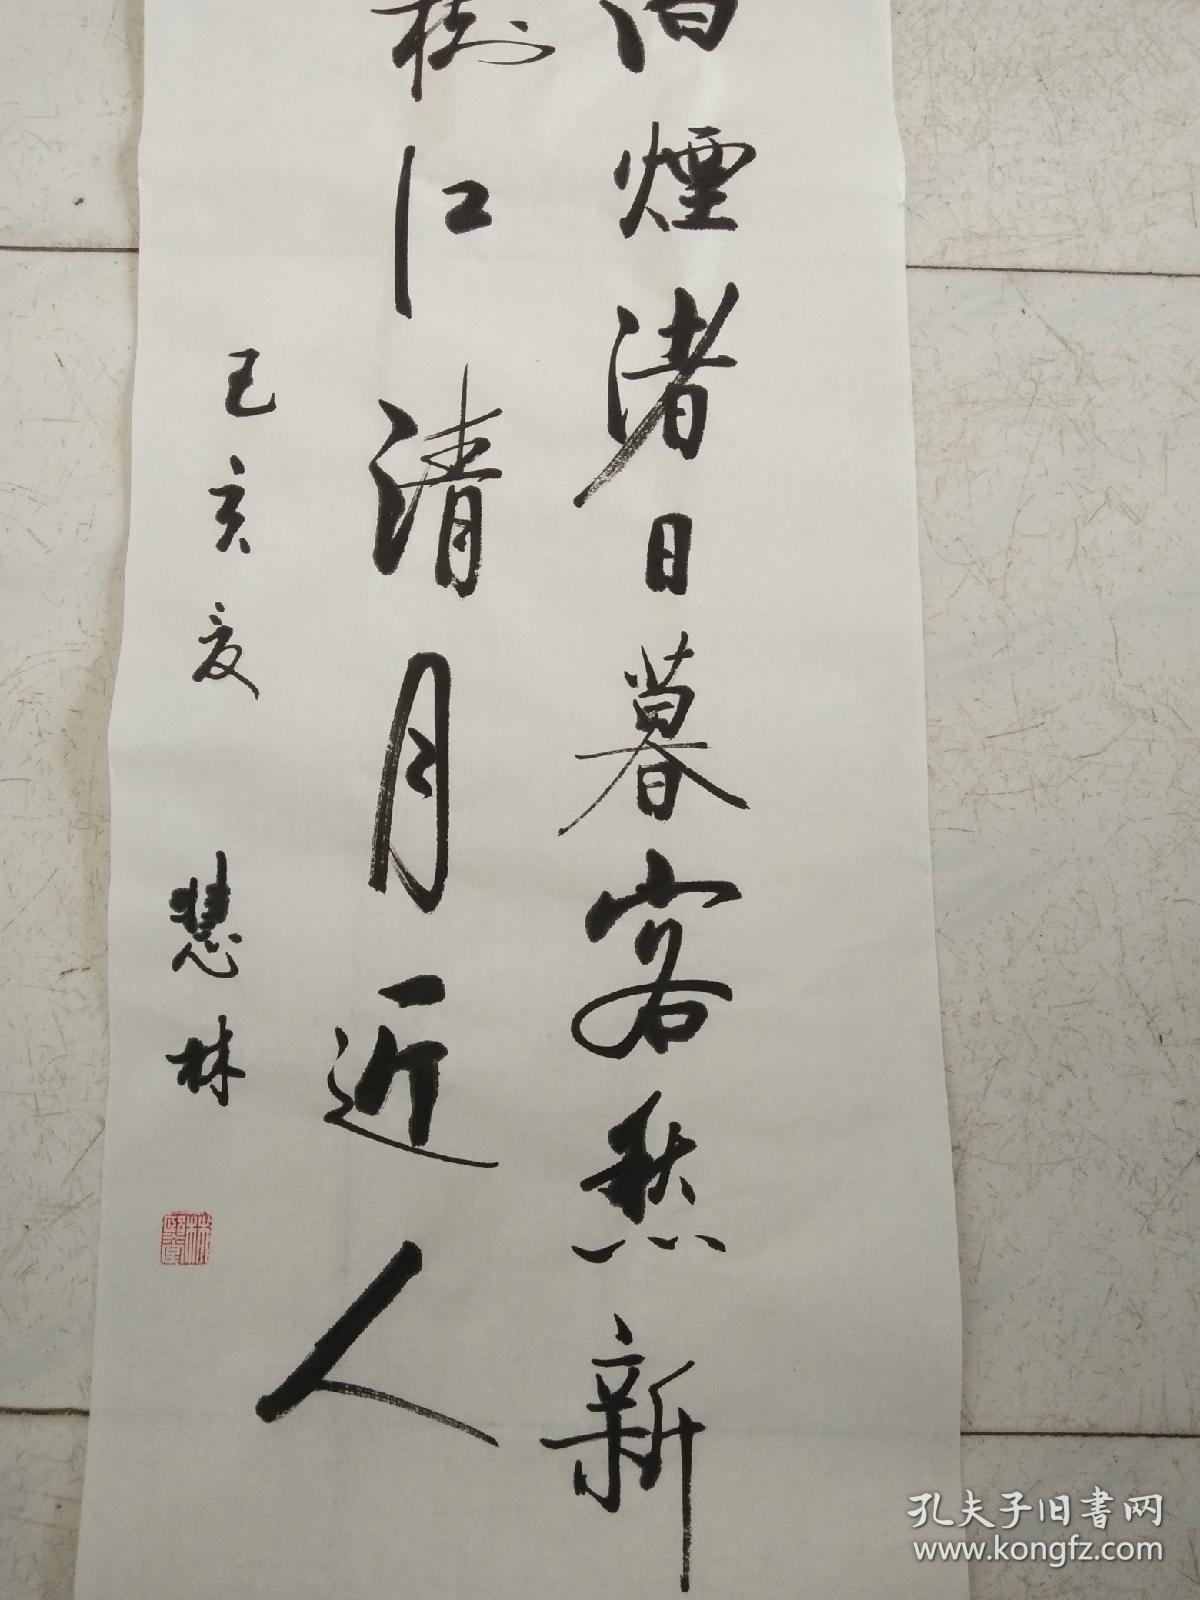 泊煙渚日暮客愁新
樹江清月近人
己亥夏
慧林
孔夫子旧書网
www.kongfz.com